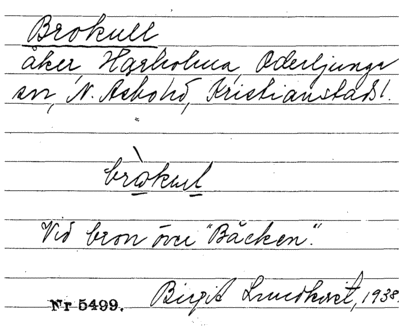 Brokull
åker, Harholma, Oderljunga
sn, N. Åsbo hd, Kristianstads l.
bròkul
Vid bron över "Bäcken".
Nr 5499. Birgit Lundkvist, 1938.